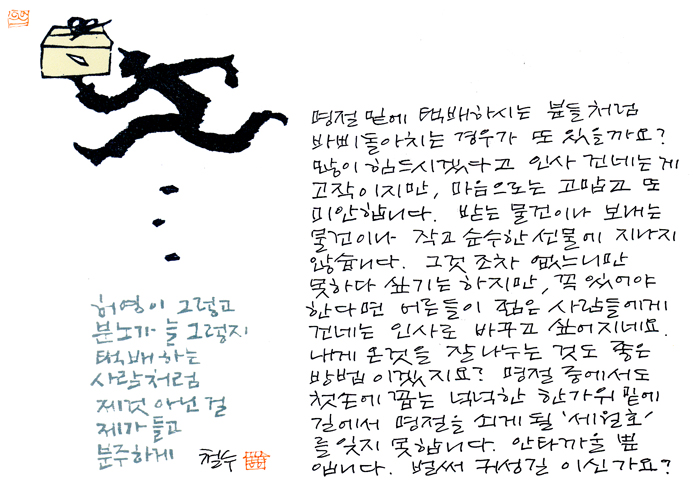 명절 밑에 택배하시는 분들처럼
바삐돌아치는 경우가 또 있을까요?
많이 힘드시겠다고 인사 건네는게
고작이지만, 마음으로는 고맙고 또
미안합니다. 받는 물건이나 보내는
물건이나 작고 순수한 선물에 지나지
않습니다. 그것 조차 없느니만
못하다 싶기는 하지만, 꼭 있어야
한다면 어른들이 젊은 사람들에게
건네는 인사로 바꾸고 싶어지네요.
내게 온것을 잘 나누는 것도 좋은
방법이겠지요? 명절 중에서도
첫손에 꼽는 넉넉한 한가위 밑에
길에서 명절을 쇠게 될 '세월호'
를 잊지 못합니다. 안타까울 뿐
입니다. 벌써 귀성길 이신가요?
허영이 그렇고
분노가 늘 그렇지
택배하는
사람처럼
제것 아닌 걸
제가 들고
분주하게 철수